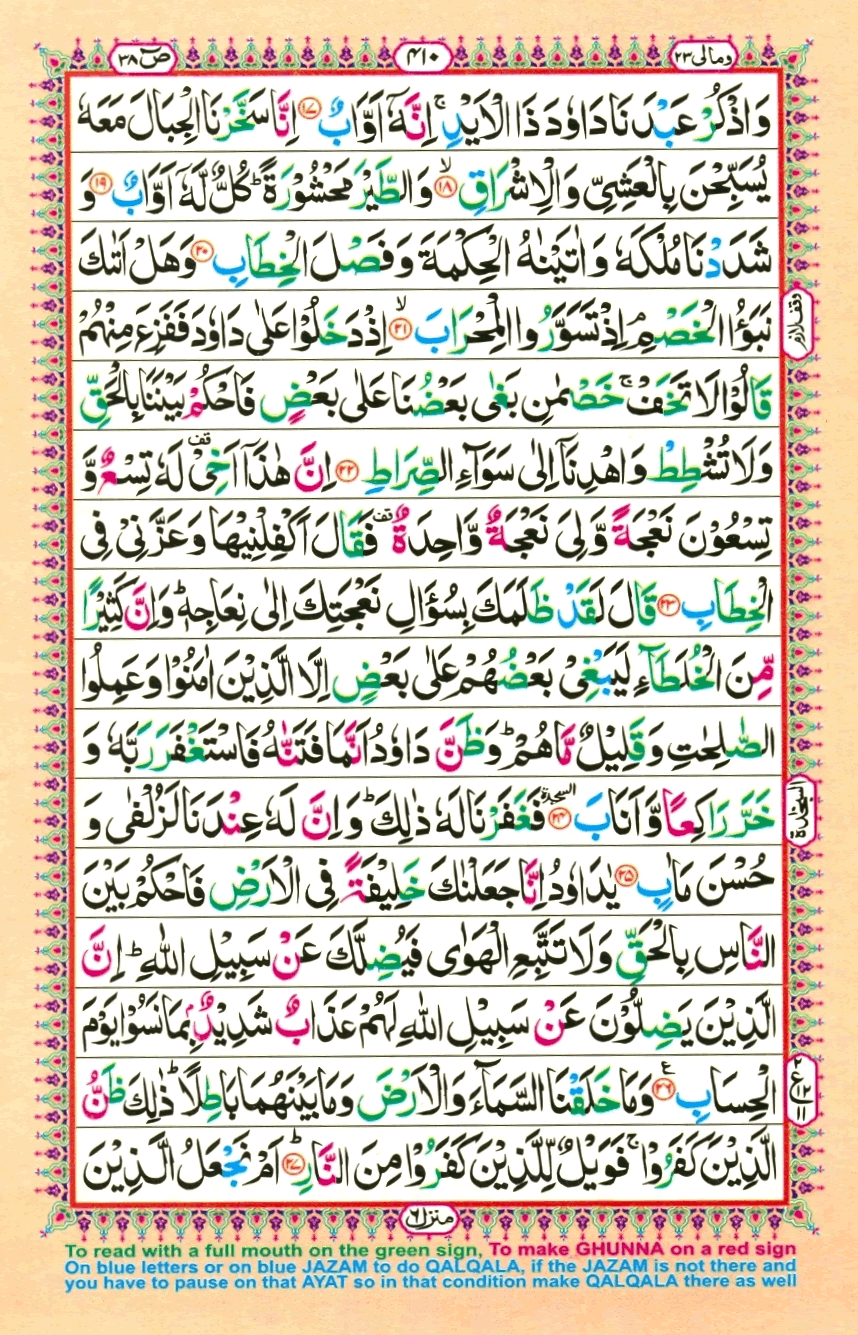 ومالی ۲۳
۴۱۰
صٓ ۳۸
وَاذْكُرْ عَبْدَنَا دَاوٗدَ ذَا الْاَيْدِ ۚ اِنَّهٗٓ اَوَّابٌ ﴿۱۷﴾ اِنَّا سَخَّرْنَا الْجِبَالَ مَعَهٗ
يُسَبِّحْنَ بِالْعَشِيِّ وَالْاِشْرَاقِ ۙ﴿۱۸﴾ وَالطَّيْرَ مَحْشُوْرَةً ؕ كُلٌّ لَّهٗٓ اَوَّابٌ ﴿۱۹﴾ وَ
شَدَدْنَا مُلْكَهٗ وَاٰتَيْنٰهُ الْحِكْمَةَ وَفَصْلَ الْخِطَابِ ﴿۲۰﴾ وَهَلْ اَتٰىكَ
نَبَؤُا الْخَصْمِ ۘ اِذْ تَسَوَّرُوا الْمِحْرَابَ ۙ﴿۲۱﴾ اِذْ دَخَلُوْا عَلٰى دَاوٗدَ فَفَزِعَ مِنْهُمْ
وقف لازم
قَالُوْا لَا تَخَفْ ۚ خَصْمٰنِ بَغٰى بَعْضُنَا عَلٰى بَعْضٍ فَاحْكُمْ بَيْنَنَا بِالْحَقِّ
وَلَا تُشْطِطْ وَاهْدِنَآ اِلٰى سَوَآءِ الصِّرَاطِ ﴿۲۲﴾ اِنَّ هٰذَآ اَخِيْ ۫ لَهٗ تِسْعٌ وَّ
تِسْعُوْنَ نَعْجَةً وَّلِيَ نَعْجَةٌ وَّاحِدَةٌ ۫ فَقَالَ اَكْفِلْنِيْهَا وَعَزَّنِيْ فِي
الْخِطَابِ ﴿۲۳﴾ قَالَ لَقَدْ ظَلَمَكَ بِسُؤَالِ نَعْجَتِكَ اِلٰى نِعَاجِهٖ ؕ وَاِنَّ كَثِيْرًا
مِّنَ الْخُلَطَآءِ لَيَبْغِيْ بَعْضُهُمْ عَلٰى بَعْضٍ اِلَّا الَّذِيْنَ اٰمَنُوْا وَعَمِلُوا
الصّٰلِحٰتِ وَقَلِيْلٌ مَّا هُمْ ؕ وَظَنَّ دَاوٗدُ اَنَّمَا فَتَنّٰهُ فَاسْتَغْفَرَ رَبَّهٗ وَ
خَرَّ رَاكِعًا وَّاَنَابَ ﴿۲۴﴾ السجدة فَغَفَرْنَا لَهٗ ذٰلِكَ ؕ وَاِنَّ لَهٗ عِنْدَنَا لَزُلْفٰى وَ
السجدة
حُسْنَ مَاٰبٍ ﴿۲۵﴾ يٰدَاوٗدُ اِنَّا جَعَلْنٰكَ خَلِيْفَةً فِي الْاَرْضِ فَاحْكُمْ بَيْنَ
النَّاسِ بِالْحَقِّ وَلَا تَتَّبِعِ الْهَوٰى فَيُضِلَّكَ عَنْ سَبِيْلِ اللّٰهِ ؕ اِنَّ
الَّذِيْنَ يَضِلُّوْنَ عَنْ سَبِيْلِ اللّٰهِ لَهُمْ عَذَابٌ شَدِيْدٌۢ بِمَا نَسُوْا يَوْمَ
الْحِسَابِ ﴿۲۶﴾ ع وَمَا خَلَقْنَا السَّمَآءَ وَالْاَرْضَ وَمَا بَيْنَهُمَا بَاطِلًا ؕ ذٰلِكَ ظَنُّ
۲ ع ۱۲ ۱۱
الَّذِيْنَ كَفَرُوْا ۚ فَوَيْلٌ لِّلَّذِيْنَ كَفَرُوْا مِنَ النَّارِ ؕ﴿۲۷﴾ اَمْ نَجْعَلُ الَّذِيْنَ
منزل ۶
To read with a full mouth on the green sign, To make GHUNNA on a red sign
On blue letters or on blue JAZAM to do QALQALA, if the JAZAM is not there and
you have to pause on that AYAT so in that condition make QALQALA there as well